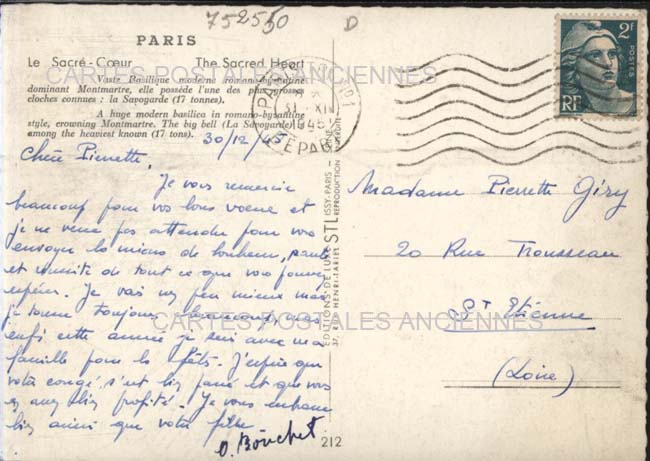 752550
D
PARIS
Le Sacré-Cœur The Sacred Heart
Vaste Basilique moderne romano-byzantine
dominant Montmartre, elle possède l'une des plus grosses
cloches connues : la Savoyarde (17 tonnes).
A huge modern basilica in romano-byzantine
style, crowning Montmartre. The big bell (La Savoyarde) is
among the heaviest known (17 tons).
CARTES POSTALES ANCIENNES
PARIS
31 XII
1945
DEPART
2F
POSTES
RF
30/12/45
Chère Pierrette,
Je vous remercie
beaucoup pour vos bons voeux et
je ne veux pas attendre pour vous
envoyer les miens de bonheur, santé
et réussite de tout ce que vous pouvez
espérer. Je vais un peu mieux mais
je tousse toujours beaucoup, mais
enfin cette année je suis avec ma
famille pour les fêtes. J'espère que
votre congé s'est bien passé et que vous
en avez bien profité. Je vous embrasse
bien ainsi que votre fille
O. Bouchet
ÉDITIONS DE LUXE STL ISSY-PARIS - SEINE
37, R. HENRI-TARIEL REPRODUCTION INTERDITE
212
Madame Pierrette Giry
20 Rue Trousseau
St Etienne
(Loire)
CARTES POSTALES ANCIENNES